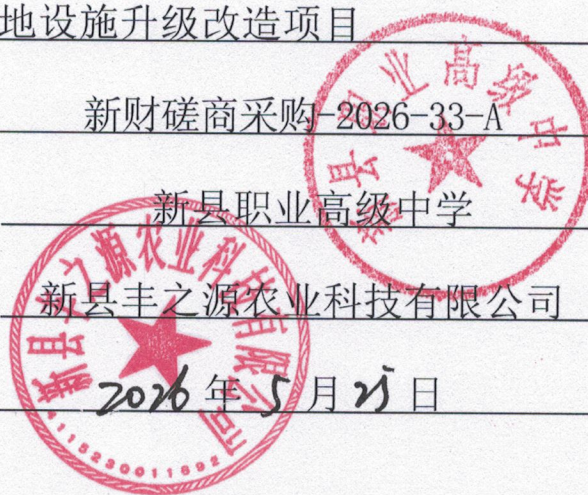 地设施升级改造项目
新财磋商采购-2026-33-A
新县职业高级中学
新县丰之源农业科技有限公司
2026年5月25日
新县职业高级中学
新县丰之源农业科技有限公司
4115230011692